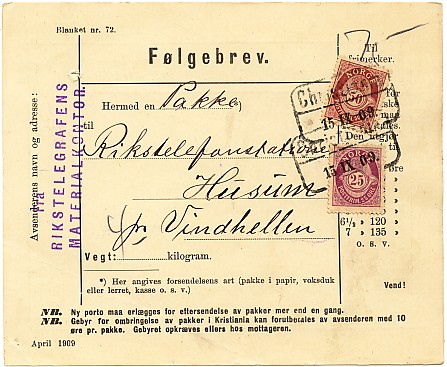 Blanket nr. 72.
7-
Følgebrev.
Til
frimerker.
Avsenderens navn og adresse:
Fra
RIKSTELEGRAFENS
MATERIALKONTOR.
Hermed en Pakke)
til
Rikstelefonstationen
Husum
pr Vindhellen
NORGE
50
15 IX 09
Den utgjør
NO
25
15 IX 09
øre
6½ » 120
7 » 135
o. s. v.
Vegt: kilogram.
*) Her angives forsendelsens art (pakke i papir, voksduk
eller lerret, kasse o. s. v.)
Vend!
NB. Ny porto maa erlægges for eftersendelse av pakker mer end en gang.
NB. Gebyr for ombringelse av pakker i Kristiania kan forutbetales av avsenderen med 10
øre pr. pakke. Gebyret opkræves ellers hos mottageren.
April 1909